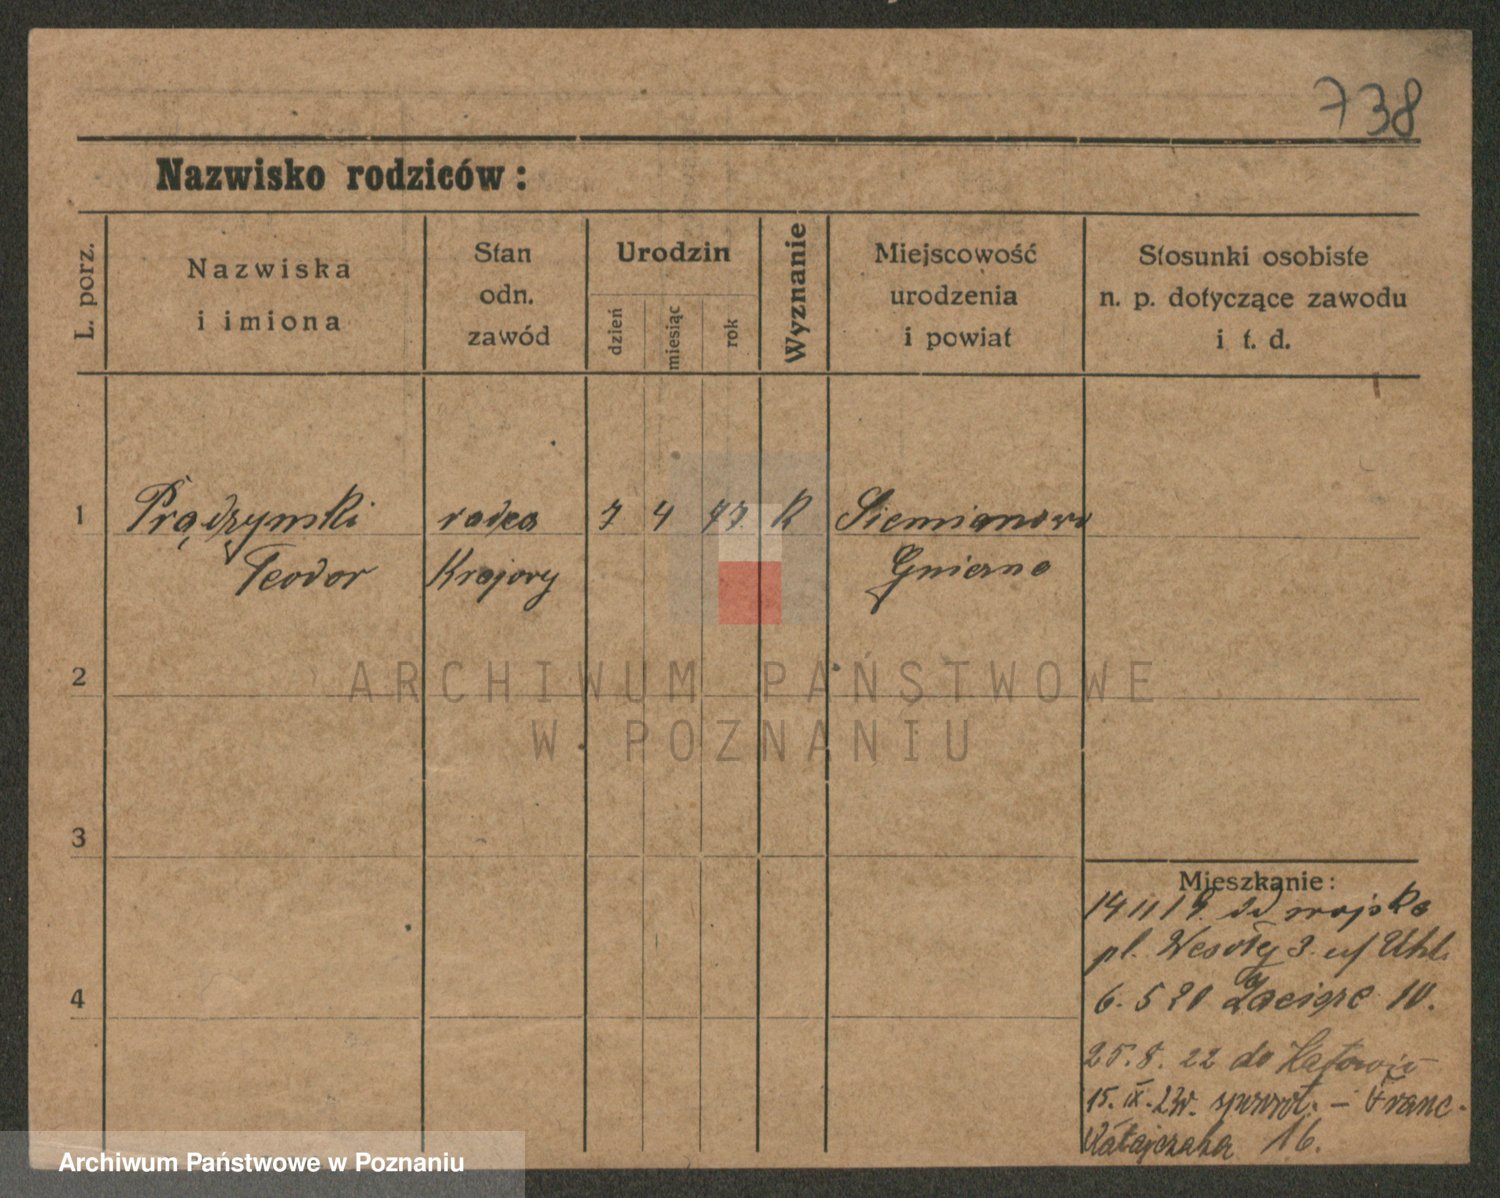 738
Nazwisko rodziców :
L. porz.
Nazwiska
i imiona
Stan
odn.
zawód
Urodzin
dzień
miesiąc
rok
Wyznanie
Miejscowość
urodzenia
i powiat
Stosunki osobiste
n. p. dotyczące zawodu
i t. d.
1 Prądzynski radca 7 4 77 K Siemianowo
Teodor Krajowy Gniezno
2
ARCHIWUM PAŃSTWOWE
W POZNANIU
3
4
Mieszkanie :
14 11 19. od wojska
pl. Wesoły 3. u/ Uhl.
6. 5 20 Zacisze 10.
25. 8. 22 do Katowic
15. IX. 23r. spowrot. – Franc.
Ratajczaka 16.
Archiwum Państwowe w Poznaniu